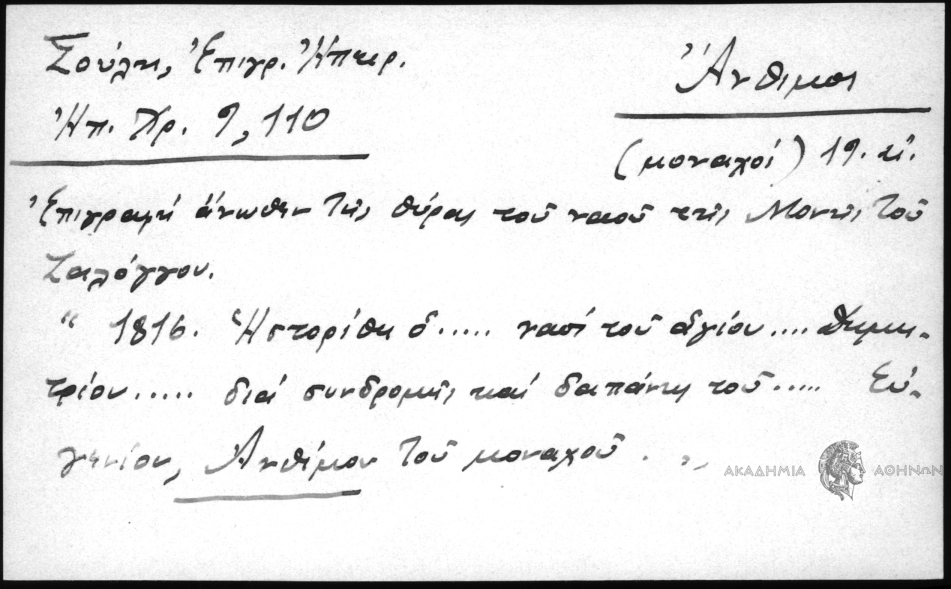 Σούλη, Ἐπιγρ. Ἠπειρ.
Ἠπ. Χρ. 9, 110
Ἄνθιμος
(μοναχός) 19. αἰ.
Ἐπιγραφή ἄνωθεν τῆς θύρας τοῦ ναοῦ στῆς Μονῆς τοῦ
Ζαλόγγου.
“ 1816. Ἡστορίθη ὁ..... ναός τοῦ ἁγίου.... Δημη-
τρίου..... διά συνδρομῆς καί δαπάνης τοῦ..... Εὐ-
γενίου, Ἀνθίμου τοῦ μοναχοῦ . . „
ΑΚΑΔΗΜΙΑ ΑΘΗΝΩΝ